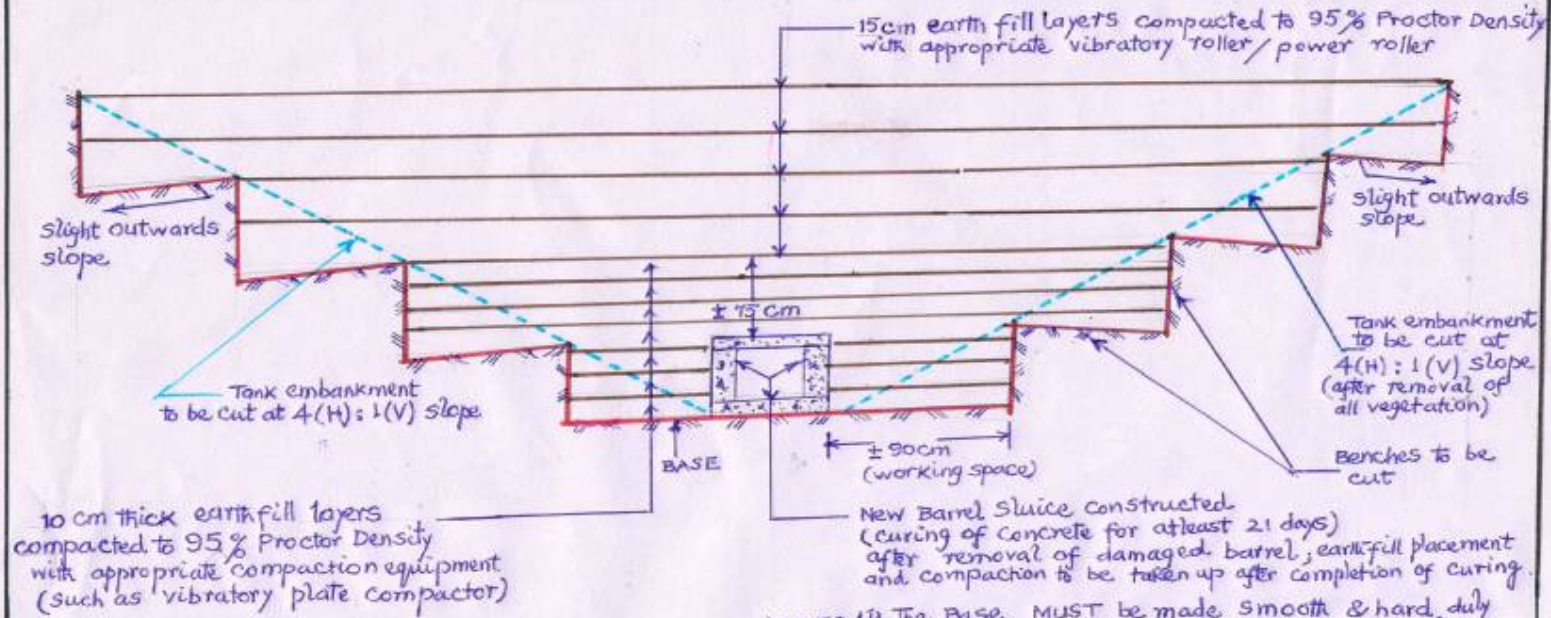 15cm earth fill layers compacted to 95% Proctor Density
with appropriate vibratory roller/power roller
slight outwards
slope
slight outwards
slope
± 75 cm
Tank embankment
to be cut at 4(H):1(V) slope
Tank embankment
to be cut at
4(H):1(V) slope
(after removal of
all vegetation)
BASE
± 90cm
(working space)
Benches to be
cut
10 cm thick earthfill layers
compacted to 95% Proctor Density
with appropriate compaction equipment
(such as vibratory plate compactor)
New Barrel Sluice constructed
(curing of concrete for atleast 21 days)
after removal of damaged barrel, earthfill placement
and compaction to be taken up after completion of curing.
The Base MUST be made smooth & hard duly